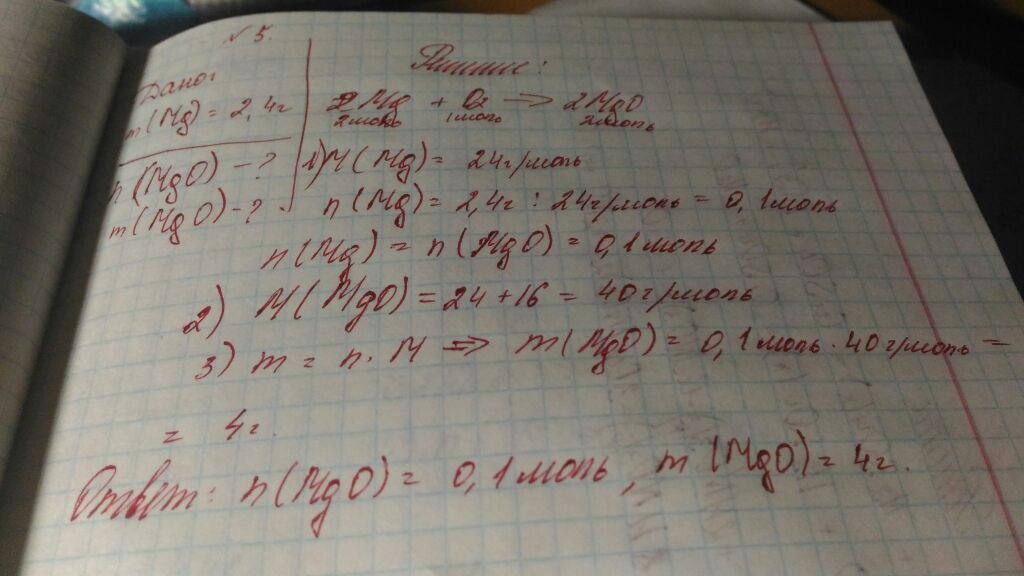 № 5.
Дано:
m(Mg) = 2,4г
n(MgO) - ?
m(MgO) - ?
Решение:
2Mg + O2 => 2MgO
2моль 1моль 2моль
1) M(Mg) = 24г/моль
n(Mg) = 2,4г : 24г/моль = 0,1моль
n(Mg) = n(MgO) = 0,1моль
2) M(MgO) = 24 + 16 = 40г/моль
3) m = n · M => m(MgO) = 0,1моль · 40г/моль =
= 4г.
Ответ: n(MgO) = 0,1моль, m(MgO) = 4г.